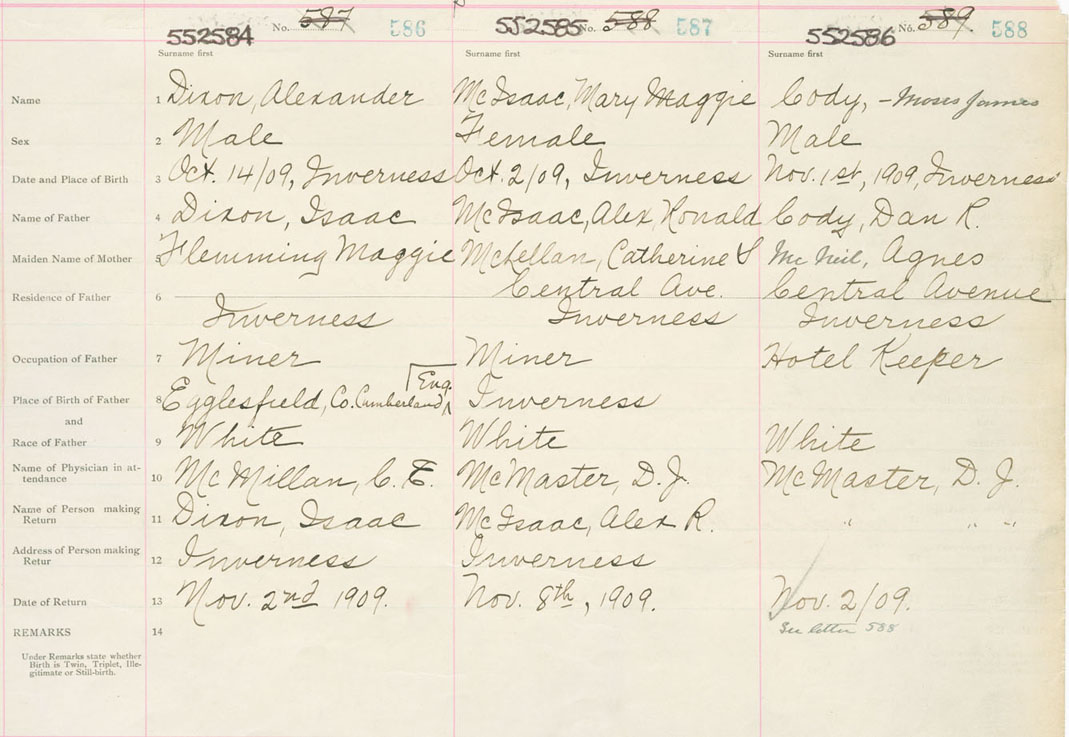 552584 No. 587 586 552585 No. 588 587 552586 No. 589. 588
Surname first Surname first Surname first
Name 1 Dixon, Alexander McIsaac, Mary Maggie Cody, - Moses James
Sex 2 Male Female Male
Date and Place of Birth 3 Oct. 14/09, Inverness Oct. 2/09, Inverness Nov. 1st, 1909, Inverness
Name of Father 4 Dixon, Isaac McIsaac, Alex Ronald Cody, Dan R.
Maiden Name of Mother Flemming Maggie McLellan, Catherine S Mc Neil, Agnes
Central Ave. Central Avenue
Residence of Father 6
Inverness Inverness Inverness
Occupation of Father 7 Miner Miner Hotel Keeper
Eng.
Place of Birth of Father 8 Egglesfield, Co. Cumberland, Inverness
and
Race of Father 9 White White White
Name of Physician in at-
tendance 10 McMillan, C. E. McMaster, D. J. McMaster, D. J.
Name of Person making
Return 11 Dixon, Isaac McIsaac, Alex R. " " "
Address of Person making
Retur 12 Inverness Inverness
Date of Return 13 Nov. 2nd 1909. Nov. 8th, 1909. Nov. 2/09.
REMARKS 14 See letter 588
Under Remarks state whether
Birth is Twin, Triplet, Ille-
gitimate or Still-birth.